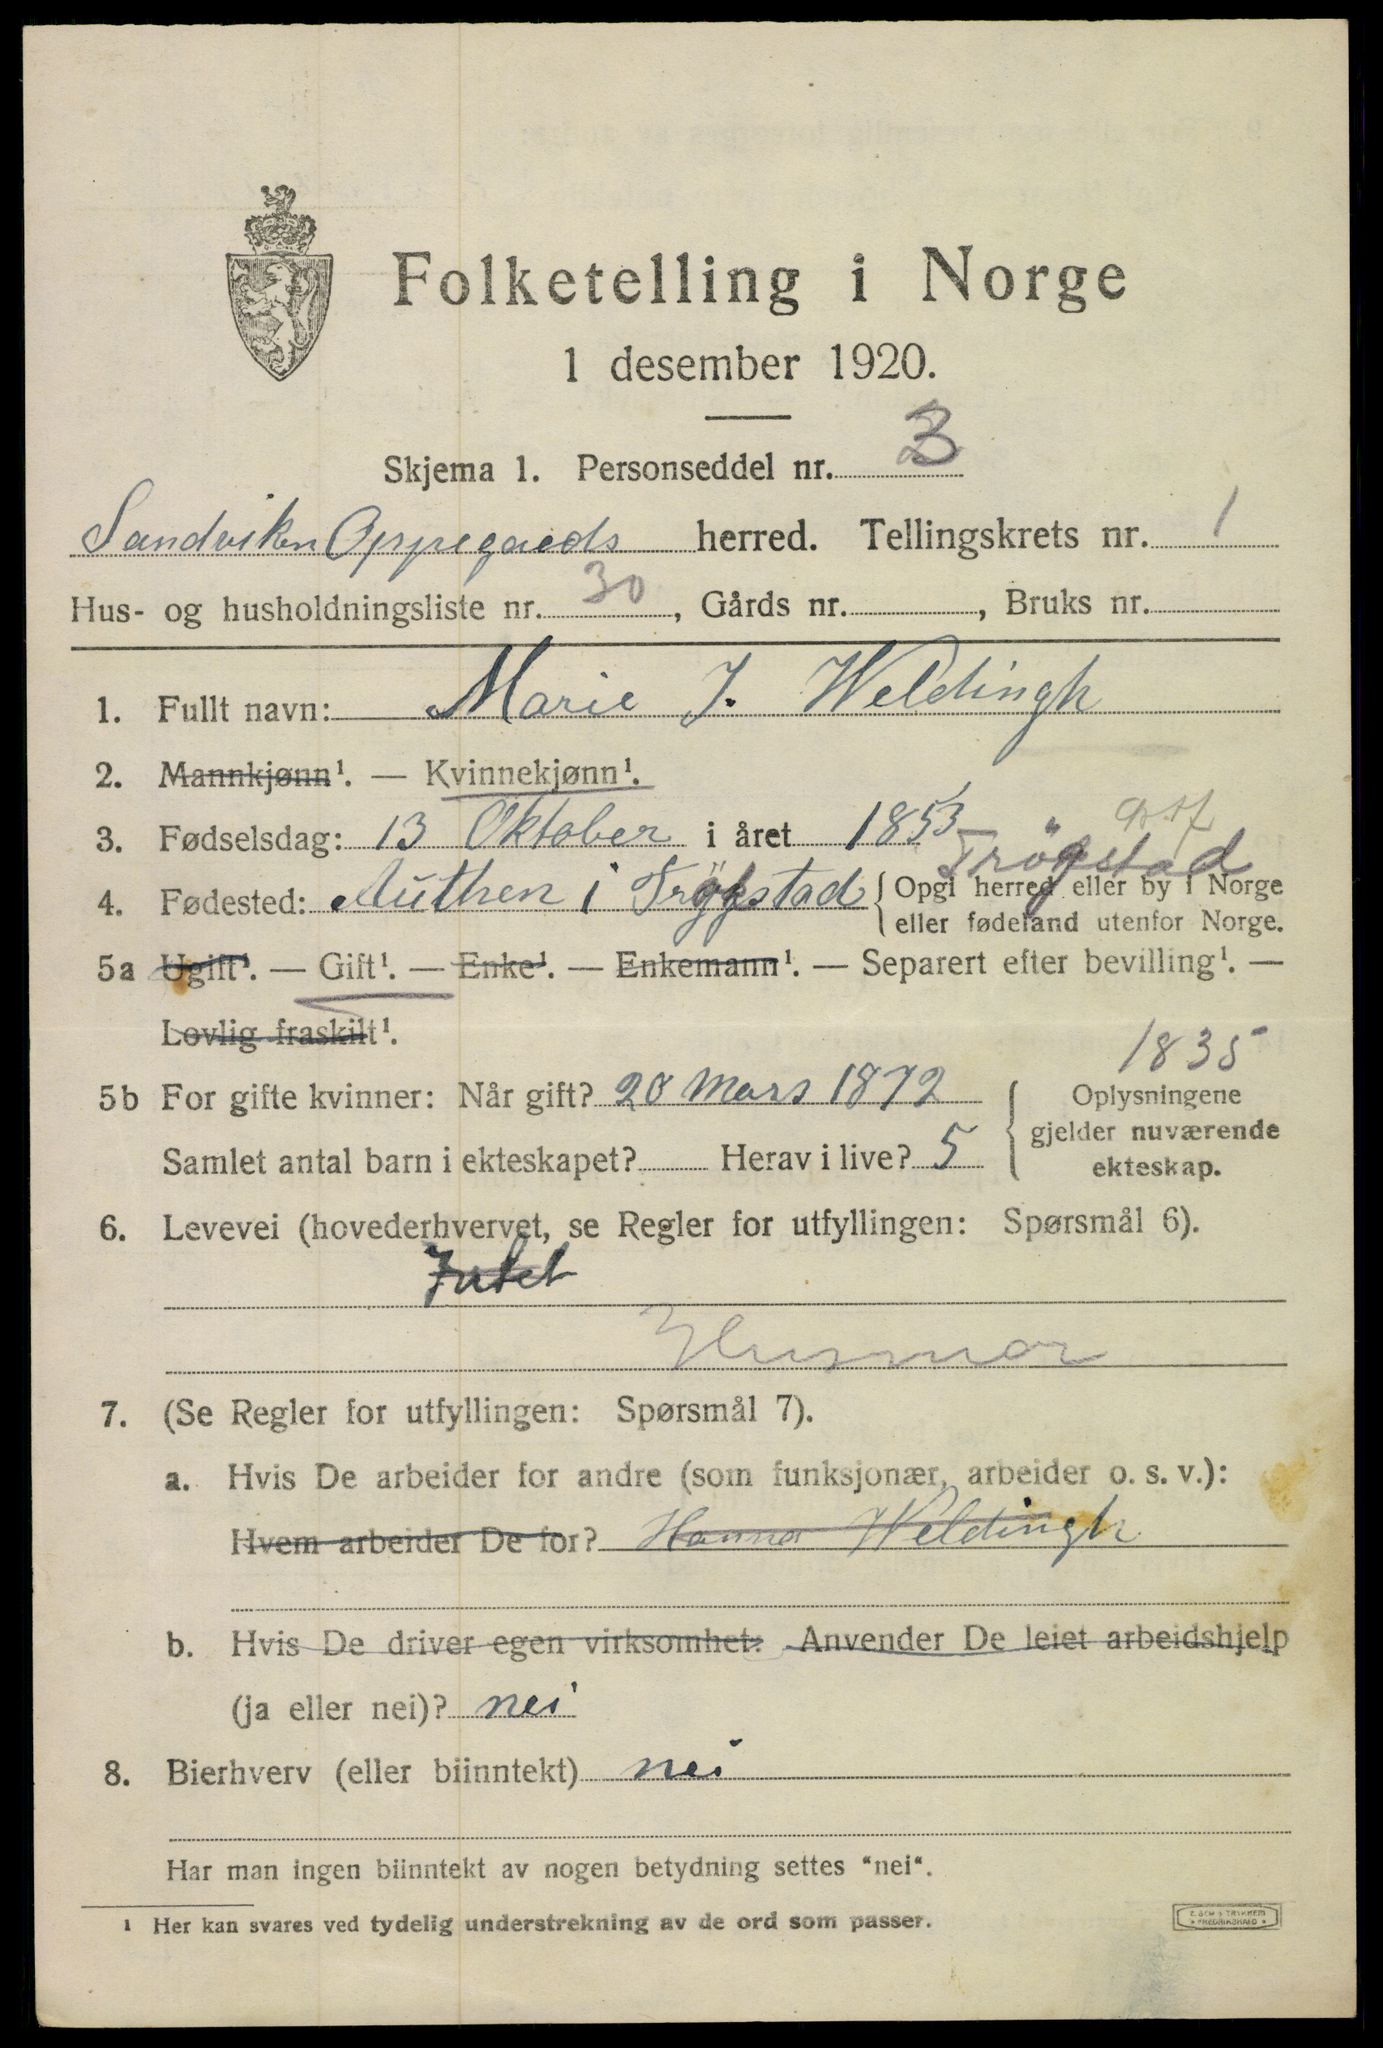 Folketelling i Norge
1 desember 1920.
Skjema 1. Personseddel nr. 3
Sandviken Oppegaards herred. Tellingskrets nr. 1
Hus- og husholdningsliste nr. 30, Gårds nr. , Bruks nr.
1. Fullt navn: Marie J. Weldingh
2. Mannkjønn¹. — Kvinnekjønn¹.
3. Fødselsdag: 13 Oktober i året 1853
Trögstad
4. Fødested: Authen i Trögstad { Opgi herred eller by i Norge
eller fødeland utenfor Norge.
5a Ugift¹. — Gift¹. — Enke¹. — Enkemann¹. — Separert efter bevilling¹. —
Lovlig fraskilt¹.
1835
5b For gifte kvinner: Når gift? 20 Mars 1872 { Oplysningene
gjelder nuværende
Samlet antal barn i ekteskapet? Herav i live? 5 ekteskap.
6. Levevei (hovederhvervet, se Regler for utfyllingen: Spørsmål 6).
Intet
Husmor
7. (Se Regler for utfyllingen: Spørsmål 7).
a. Hvis De arbeider for andre (som funksjonær, arbeider o. s. v.):
Hvem arbeider De for? Hanna Weldingh
b. Hvis De driver egen virksomhet: Anvender De leiet arbeidshjelp
(ja eller nei)? nei
8. Bierhverv (eller biinntekt) nei
Har man ingen biinntekt av nogen betydning settes "nei".
¹ Her kan svares ved tydelig understrekning av de ord som passer.
FREDRIKSHALD